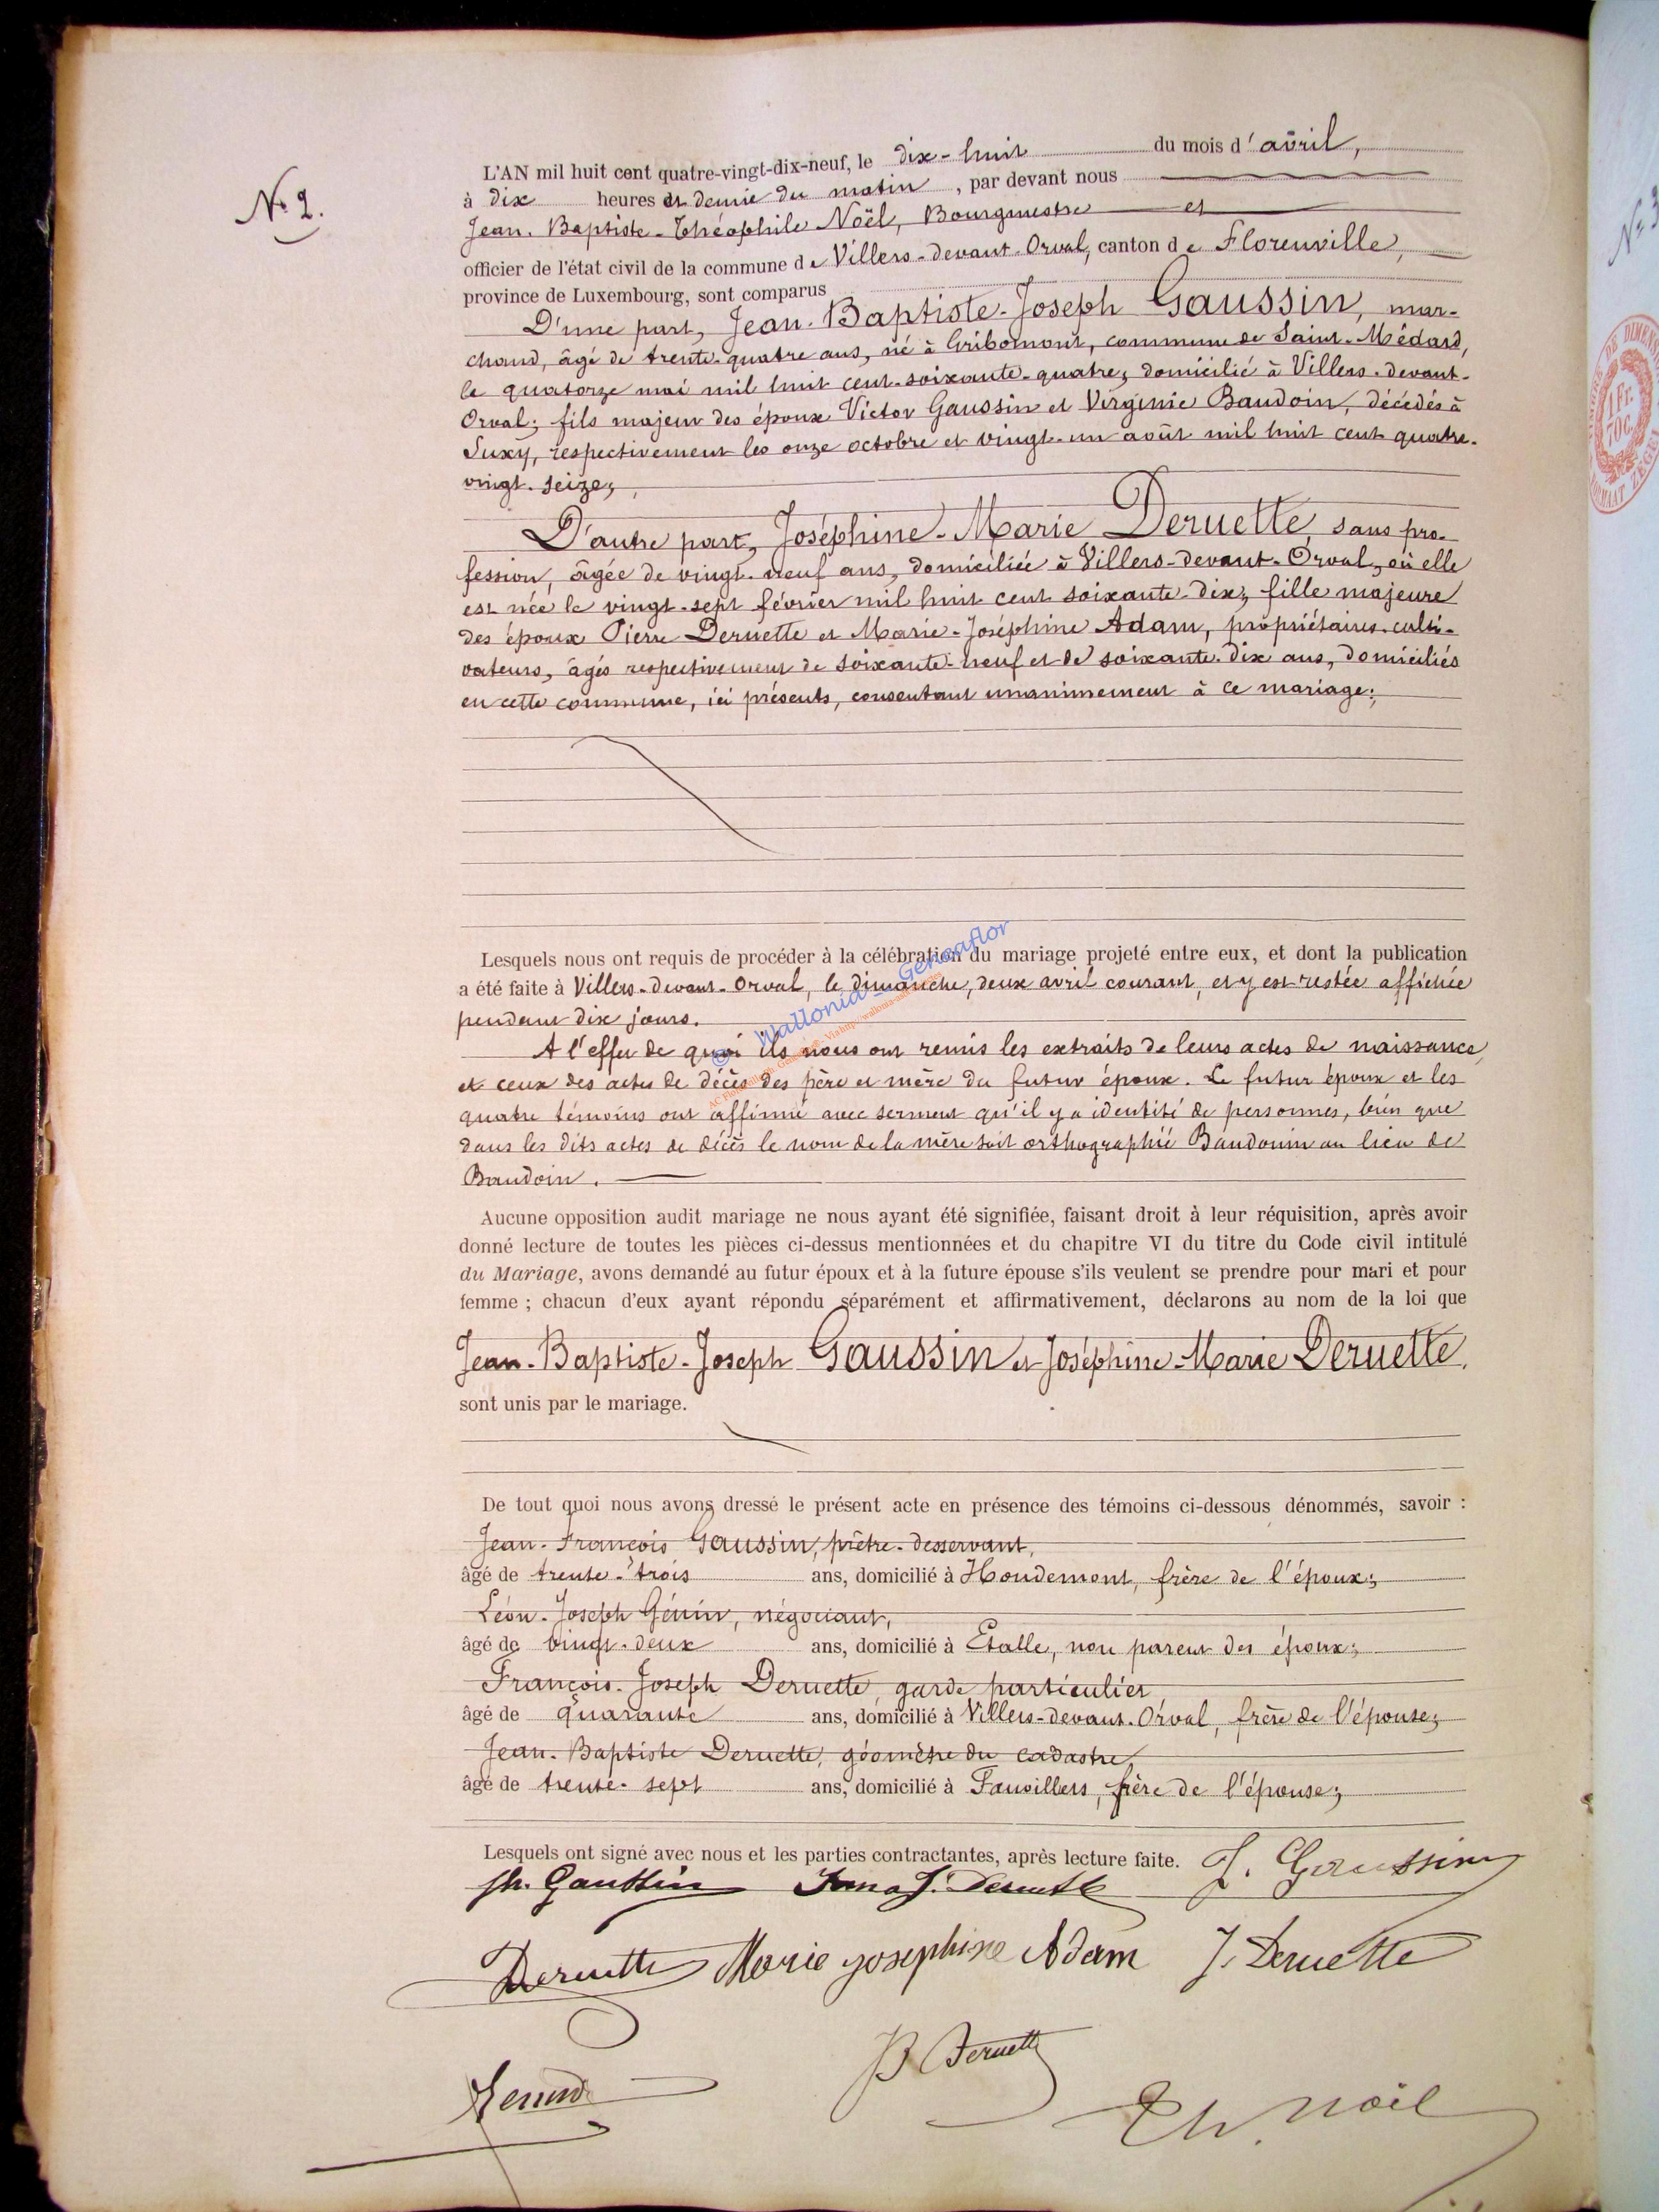 N° 2.
L'AN mil huit cent quatre-vingt-dix-neuf, le dix-huit du mois d'avril,
à dix heures et demie du matin, par devant nous
Jean-Baptiste-Théophile Noël, Bourgmestre et
officier de l'état civil de la commune de Villers-devant-Orval, canton de Florenville,
province de Luxembourg, sont comparus
D'une part, Jean-Baptiste-Joseph Gaussin, mar-
chand, âgé de trente-quatre ans, né à Gribomont, commune de Saint-Médard,
le quatorze mai mil huit cent soixante-quatre; domicilié à Villers-devant-
Orval; fils majeur des époux Victor Gaussin et Virginie Baudoin, décédés à
Suxy, respectivement les onze octobre et vingt-un août mil huit cent quatre-
vingt-seize;
D'autre part, Joséphine-Marie Deruette, sans pro-
fession, âgée de vingt-neuf ans, domiciliée à Villers-devant-Orval, où elle
est née le vingt-sept février mil huit cent soixante-dix; fille majeure
des époux Pierre Deruette et Marie-Joséphine Adam, propriétaires-culti-
vateurs, âgés respectivement de soixante-neuf et de soixante-dix ans, domiciliés
en cette commune, ici présents, consentant unanimement à ce mariage;
Lesquels nous ont requis de procéder à la célébration du mariage projeté entre eux, et dont la publication
a été faite à Villers-devant-Orval, le dimanche, deux avril courant, et y est restée affichée
pendant dix jours.
© Wallonia - Geneaflor
A l'effet de quoi ils nous ont remis les extraits de leurs actes de naissance,
et ceux des actes de décès des père et mère du futur époux. Le futur époux et les
quatre témoins ont affirmé avec serment qu'il y a identité de personnes, bien que
dans les dits actes de décès le nom de la mère soit orthographié Baudouin au lieu de
Baudoin.
Aucune opposition audit mariage ne nous ayant été signifiée, faisant droit à leur réquisition, après avoir
donné lecture de toutes les pièces ci-dessus mentionnées et du chapitre VI du titre du Code civil intitulé
du Mariage, avons demandé au futur époux et à la future épouse s'ils veulent se prendre pour mari et pour
femme ; chacun d'eux ayant répondu séparément et affirmativement, déclarons au nom de la loi que
Jean-Baptiste-Joseph Gaussin et Joséphine-Marie Deruette,
sont unis par le mariage.
De tout quoi nous avons dressé le présent acte en présence des témoins ci-dessous dénommés, savoir :
Jean-François Gaussin, prêtre-desservant,
âgé de trente-trois ans, domicilié à Houdemont, frère de l'époux;
Léon-Joseph Génin, négociant,
âgé de vingt-deux ans, domicilié à Etalle, non parent des époux;
François-Joseph Deruette, garde particulier
âgé de quarante ans, domicilié à Villers-devant-Orval, frère de l'épouse;
Jean-Baptiste Deruette, géomètre du cadastre,
âgé de trente-sept ans, domicilié à Fauvillers, frère de l'épouse;
Lesquels ont signé avec nous et les parties contractantes, après lecture faite. J. Gaussin
Jh. Gaussin J. Deruette
Deruette Marie josephine Adam J. Deruette
JB Deruette
Th. Noël
N° 3
1 Fr.
70 C.